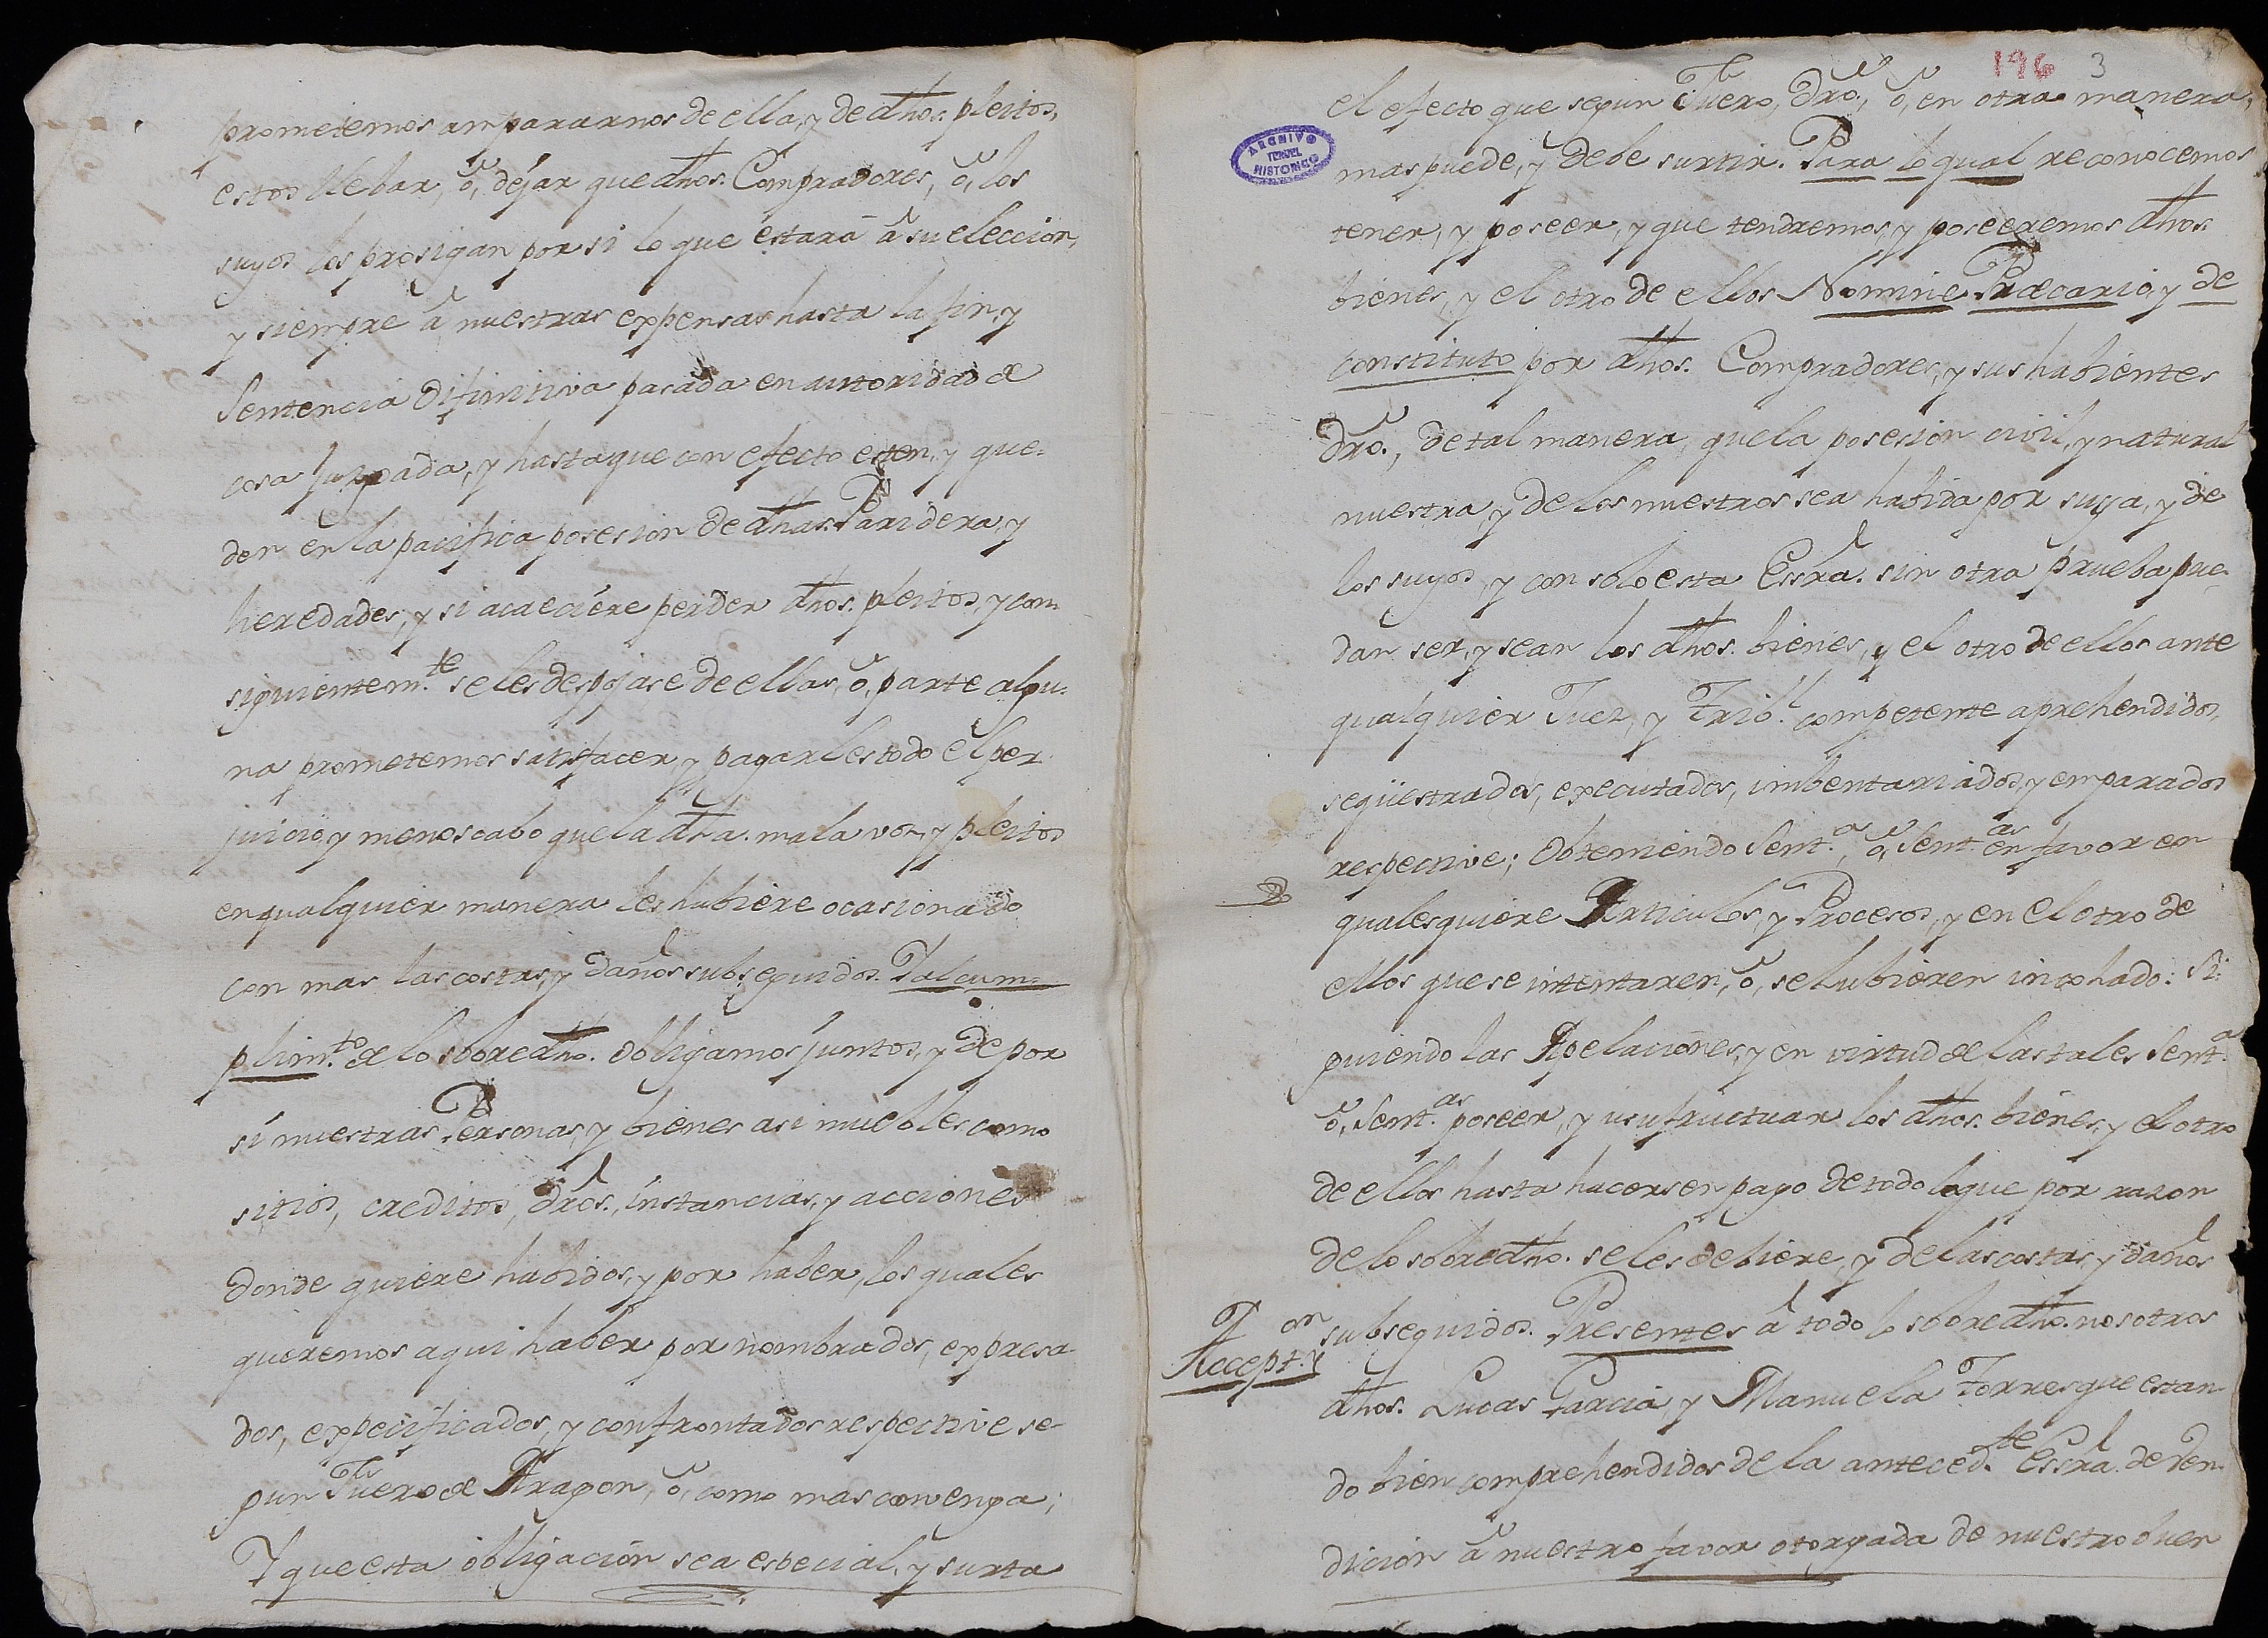 prometemos ampararnos de ella, y de dhos. pleitos,
estos llebar, ò, déjar que dhos. Compradores, ò, los
suyos los prosigan por si lo que éstará à su eleccion,
y siempre à nuestras expensas hasta la fin, y
Sentencia difinitiva pasada en autoridad de
cosa juzgada, y hasta que con efecto esten, y que-
den en la pacifica posesion de dhas. Paridera, y
heredades, y si acaeciére perder dhos. pleitos, y con-
siguientem.te se les despojase de ellas, ò, parte algu-
na prometemos satisfacer, y pagarles todo el per-
juicio, y menoscabo que la dha. mala voz, y pleitos
en qualquier manera les hubiére ocasionado
con mas las costas, y daños subseguidos. Y al cum-
plim.to de lo sobredho. obligamos juntos, y de por
sí nuestras Personas, y bienes asi muebles como
sitios, creditos, dros., instancias, y acciones
donde quiere habidos, y por haber, los quales
queremos aqui haber por nombrados, expresa-
dos, expecificados, y confrontados respective se-
gun Fuero de Aragon, ò, como mas convenga;
Y que esta obligación sea especial, y surta
196 3
el efecto que segun Fuero, dro., ò, en otra manera,
mas puede, y debe surtir. Para lo qual reconocemos
ARCHIVO
TERUEL
HISTORICO
tener, y poseer, y que tendremos, y poseeremos dhos.
bienes, y el otro de ellos Nomine Præcario, y de
constituto por dhos. Compradores, y sus habientes
dro., de tal manera, que la posesion civil, y natural
nuestra, y de los nuestros sea habida por suya, y de
los suyos, y con solo esta Essra. sin otra prueba pue-
dan ser, y sean los dhos. bienes, y el otro de ellos ante
qualquier Juez, y Trib.l competente aprehendidos,
seqüestrados, executados, imbentariados, y emparados
respective; Obteniendo Sent.a, ò, Sent.as en favor en
qualesquiere Articulos, y Procesos, y en el otro de
ellos que se intentaren, ò, se hubieren incohado: Si-
guiendo las Apelaciones, y en virtud de las tales Sent.a
ò, Sent.as poseer, y usufructuar los dhos. biénes, y el otro
de ellos hasta hacersen pago de todo lo que por razon
de lo sobredho. se les debiére, y de las costas, y daños
subseguidos. Presentes à todo lo sobredho. nosotros
Accept.on
dhos. Lucas Garcia, y Manuela Torres que estan-
do bien comprehendidos de la anteced.te Essra. de Ven-
dicion à nuestro favor otorgada de nuestro buen